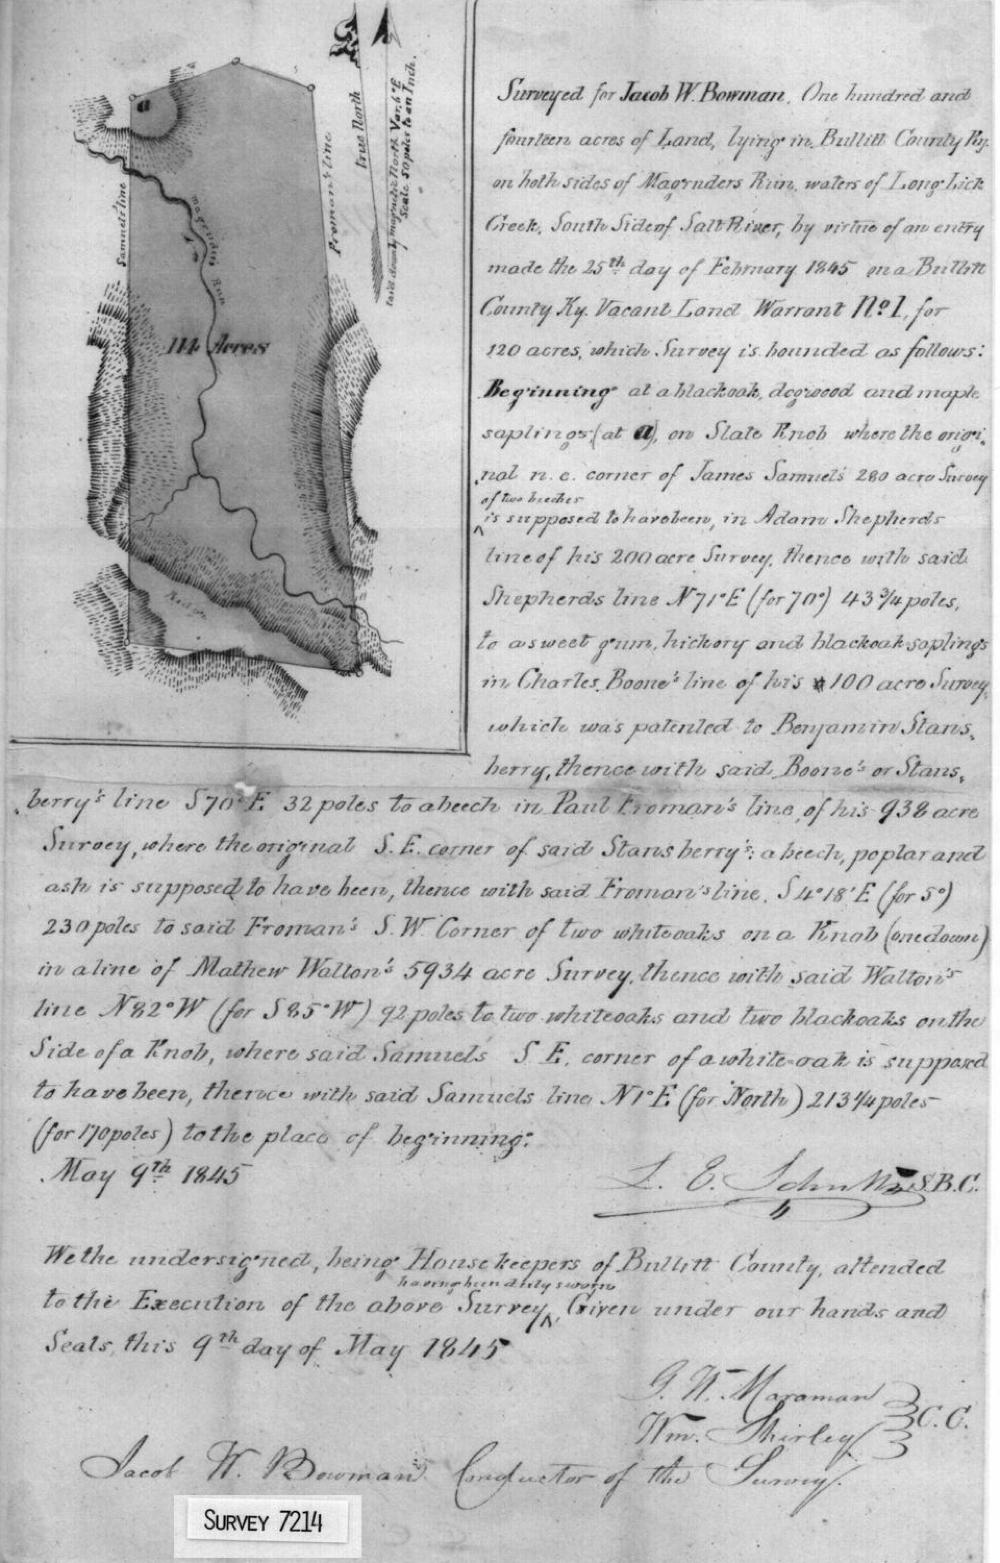 a
Samuels line
Magruders Run
114 Acres
Fromans line
True North
laid down by magnetic North Var. 6° E
Scale 50 poles to an Inch.
Surveyed for Jacob W. Bowman, One hundred and
fourteen acres of Land, lying in Bullitt County Ky.
on both sides of Magruders Run, waters of Long Lick
Creek, South Side of Salt River, by virtue of an entry
made the 25th day of February 1845 on a Bullitt
County Ky. Vacant Land Warrant No 1, for
120 acres, which Survey is bounded as follows:
Beginning at a blackoak, dogwood and maple
saplings (at a), on Slate Knob where the origi,
nal n. e. corner of James Samuels' 280 acre Survey
of two beeches
^ is supposed to have been, in Adam Shepherds
line of his 200 acre Survey, thence with said
Shepherds line N 71° E (for 70°) 43 3/4 poles,
to a sweet gum, hickory and blackoak saplings
in Charles Boone's line of his 100 acre Survey,
which was patented to Benjamin Stans,
berry, thence with said Boone's or Stans,
berry's line S 70° E 32 poles to a beech in Paul Froman's line, of his 938 acre
Survey, where the original S. E. corner of said Stansberry's: a beech, poplar and
ash is supposed to have been, thence with said Froman's line, S 4° 18' E (for 5°)
230 poles to said Froman's S. W. Corner of two whiteoaks on a Knob (one down)
in a line of Mathew Walton's 5934 acre Survey, thence with said Walton's
line N 82° W (for S 85° W) 92 poles to two whiteoaks and two blackoaks on the
Side of a Knob, where said Samuels' S E. corner of a white-oak is supposed
to have been, thence with said Samuels line N 1° E (for North) 213 1/4 poles
(for 170 poles) to the place of beginning.
May 9th 1845
L. E. Schultz S.B.C.
We the undersigned, being Housekeepers of Bullitt County, attended
having been duly sworn
to the Execution of the above Survey ^, Given under our hands and
Seals, this 9th day of May 1845
G. W. Maraman
Wm. Shirley } C. C.
Jacob W. Bowman Conductor of the Survey.
SURVEY 7214